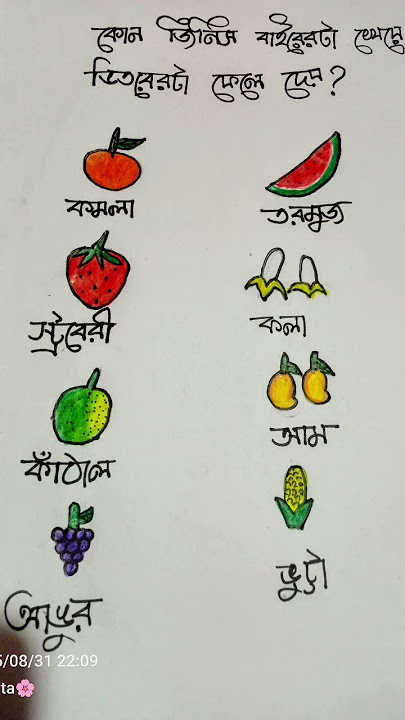 কোন জিনিস বাইরেরটা খেয়ে
ভিতরেরটা ফেলে দেয়?
কমলা
তরমুজ
স্ট্রবেরী
কলা
কাঁঠাল
আম
আঙুর
ভুট্টা
5/08/31 22:09
ta🌸